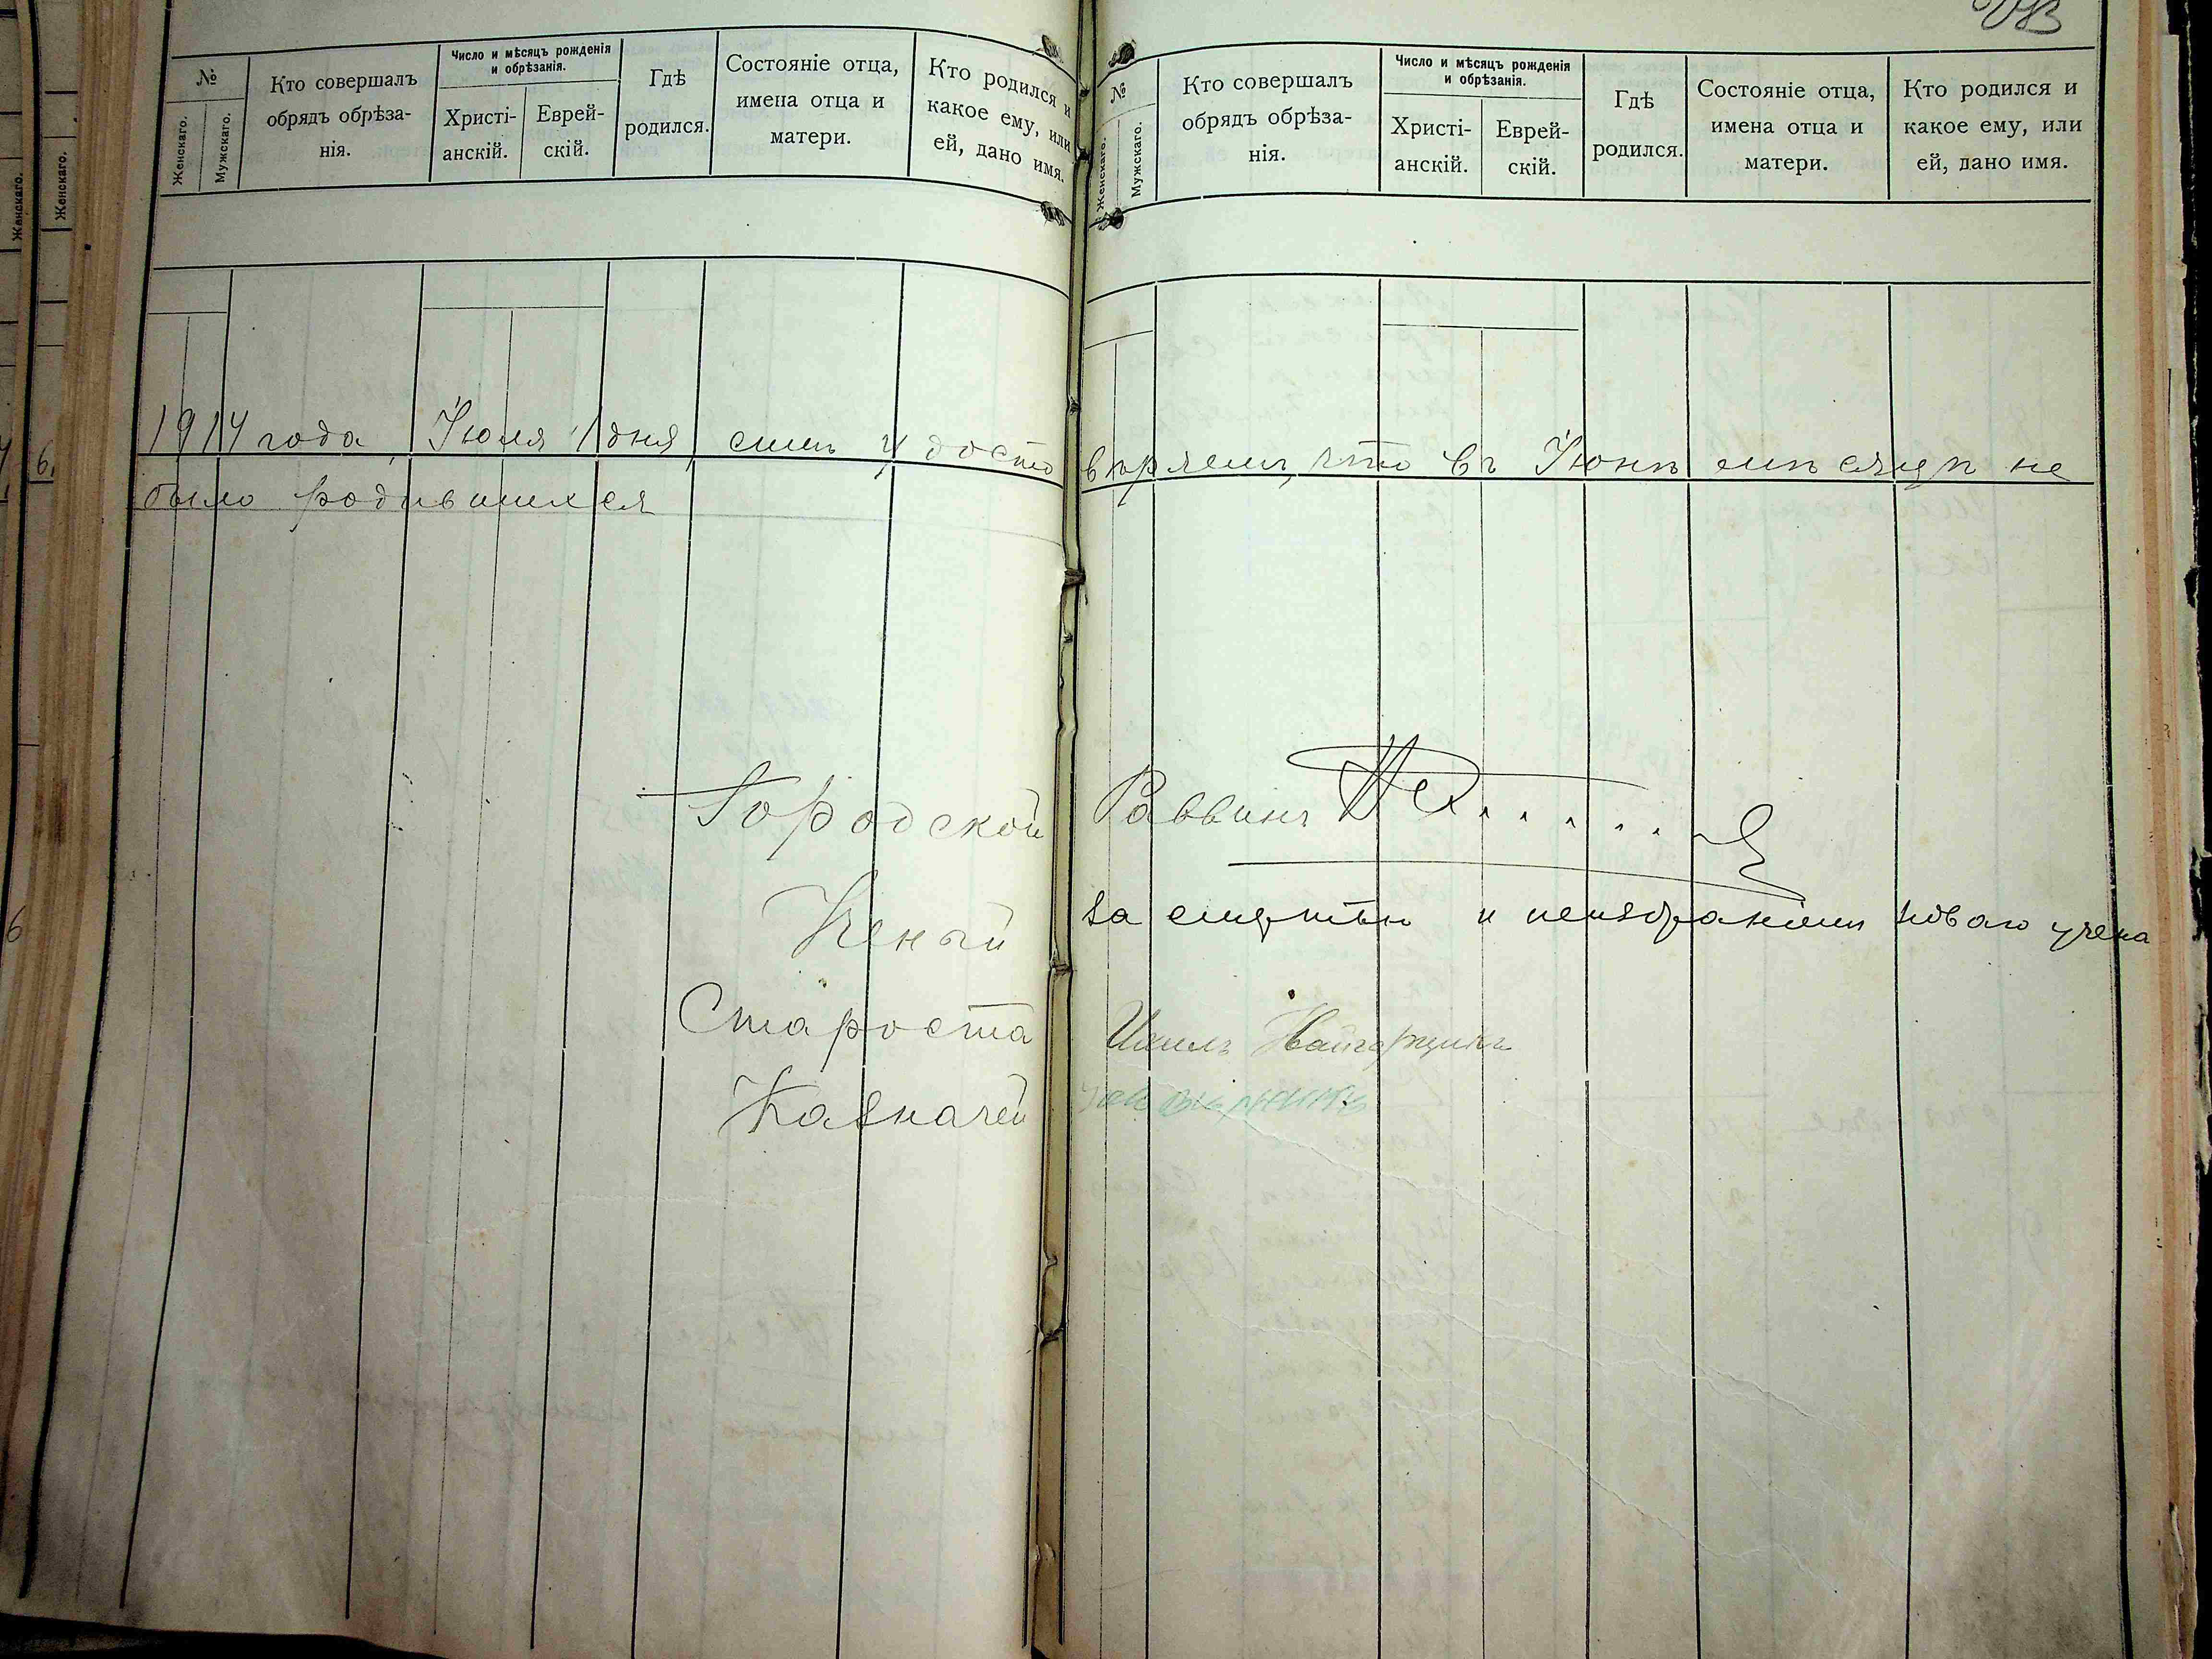 №
Женскаго.
Мужскаго.
Кто совершалъ
обрядъ обрѣза-
нія.
Число и мѣсяцъ рожденія
и обрѣзанія.
Христі-
анскій.
Еврей-
скій.
Гдѣ
родился.
Состояніе отца,
имена отца и
матери.
Кто родился и
какое ему, или
ей, дано имя.
№
Женскаго.
Мужскаго.
Кто совершалъ
обрядъ обрѣза-
нія.
Число и мѣсяцъ рожденія
и обрѣзанія.
Христі-
анскій.
Еврей-
скій.
Гдѣ
родился.
Состояніе отца,
имена отца и
матери.
Кто родился и
какое ему, или
ей, дано имя.
Женскаго.
Женскаго.
6.
6
1914 года, Іюля 1 дня, симъ удостовѣряемъ, что въ Іюнѣ мѣсяцѣ не
было родившихся
Городской Раввинъ
Ученый за смертью и неизбраніемъ новаго учена
Староста
Казначей